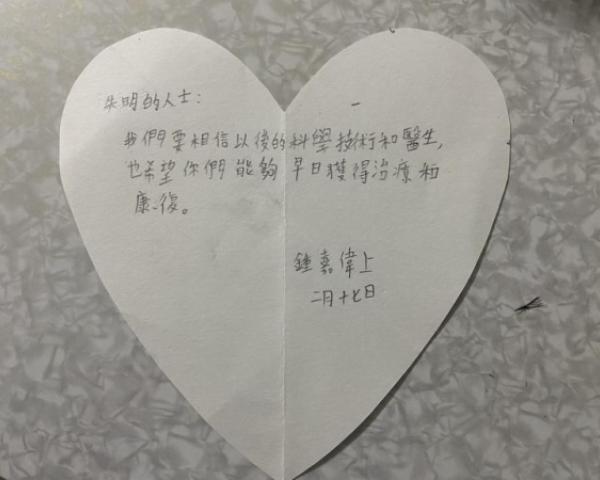 失明的人士：
我們要相信以後的科學技術和醫生，
也希望你們能夠早日獲得治療和
康復。
鍾嘉偉上
二月十七日